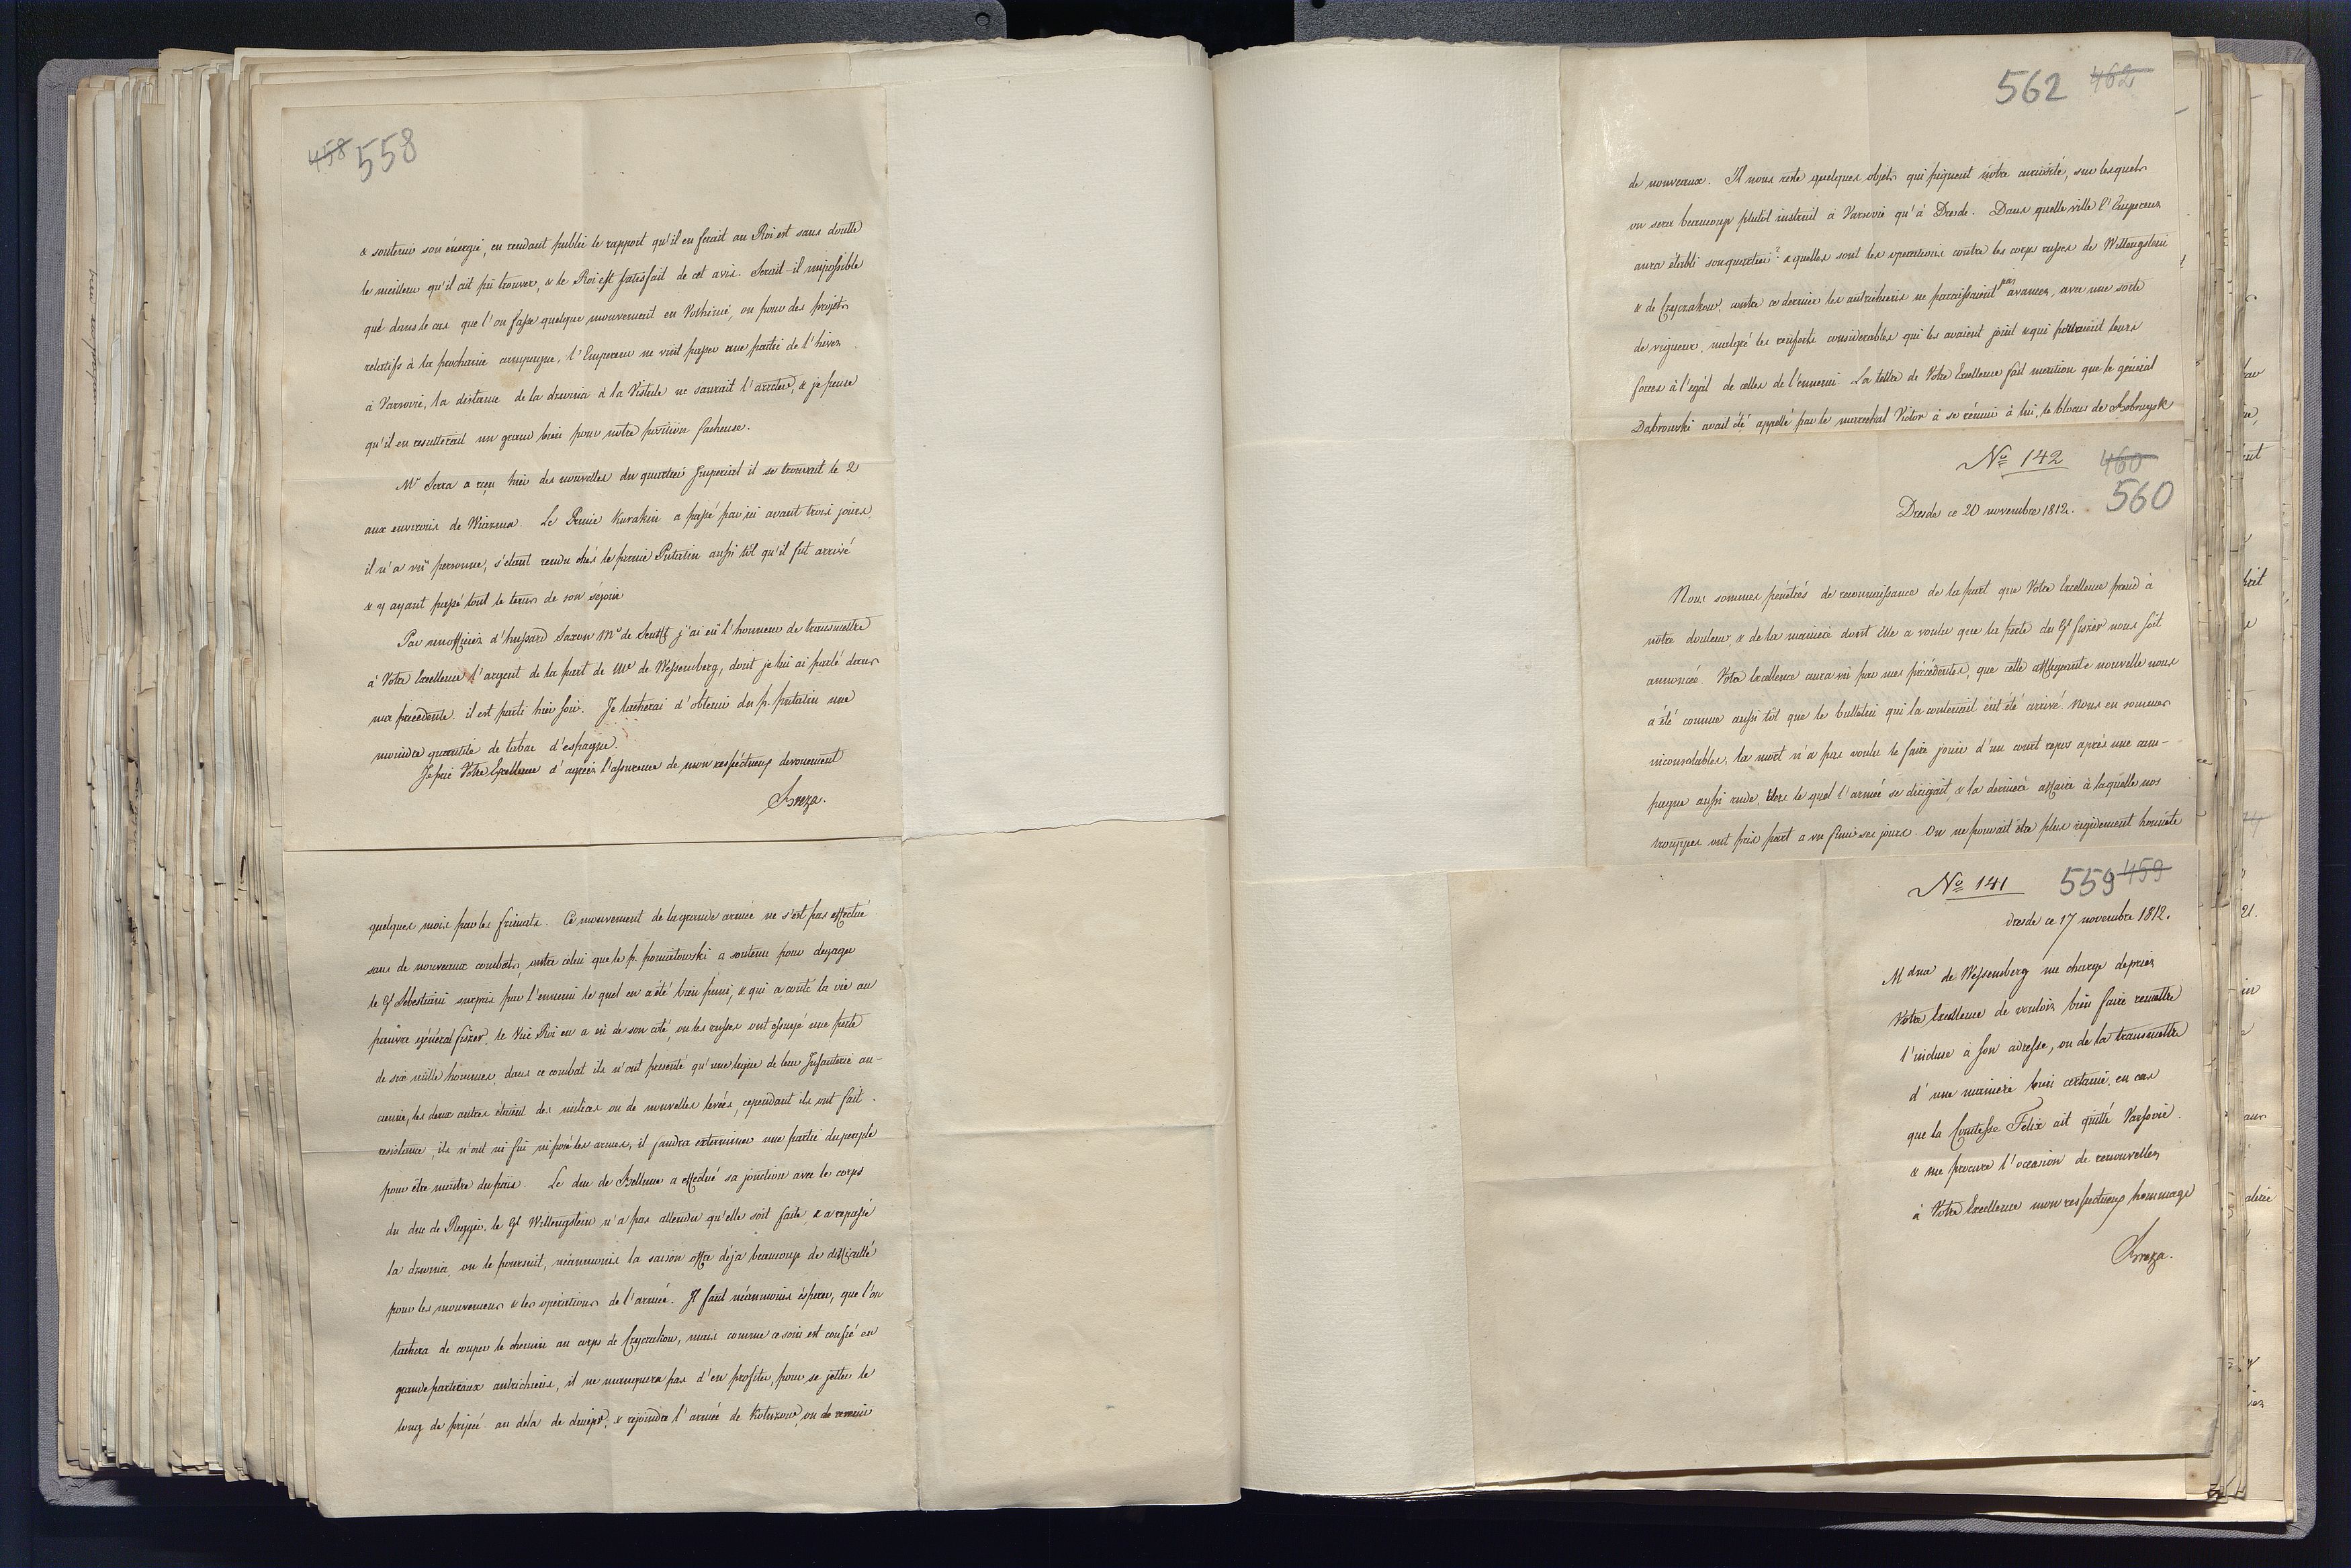 458 558
& soutenir son énergie, en rendant public le rapport qu'il en ferait au Roi est sans doutte
le meilleur qu'il ait pû trouver, & le Roi est satisfait de cet avis. Serait-il impossible
que dans le cas que l'on fasse quelque mouvement en Volhinie, ou pour des projets
relatifs à la prochaine campagne, l'Empereur ne vint passer une partie de l'hiver
à Varsovie, la distance de la dzwina à la Vistule ne saurait l'arreter, & je pense
qu'il en resulterait un grand bien pour notre position facheuse.
Mr Serra a reçu hier des nouvelles du quartier Imperial il se trouvait le 2
aux environs de Wiazma. Le Prince Kurakin a passé par ici avant trois jours
il n'a vû personne, s'étant rendu chés le prince Putiatin aussi tôt qu'il fut arrivé
& y ayant passé tout le tems de son séjour
Par un officier d'hussard Saxon Mr de Senfft j'ai eû l'honneur de transmettre
à Votre Excellence l'argent de la part de Me de Wessemberg, dont je lui ai parlé dans
ma precedente. il est parti hier soir. Je tacherai d'obtenir du p. putiatin une
moindre quantité de tabac d'espagne.
Je prie Votre Excellence d'agréer l'assurance de mon respectueux devouement
Breza.
quelques mois par les frimats. Ce mouvement de la grande armée ne s'est pas effectué
sans de nouveaux combats, outre celui que le p. poniatowski a soutenu pour degager
le Gl Sebestiani surpris par l'ennemi le quel en a été bien puni, & qui a couté la vie au
pauvre général fiszer, le Vice Roi en a eû de son coté, ou les russes ont essuyé une perte
de six mille hommes, dans ce combat ils n'ont presenté qu'une ligne de leur Infanterie an-
cienne, les deux autres étaient des milices ou de nouvelles levées, cependant ils ont fait
resistance, ils n'ont ni fui ni posé les armes, il faudra exterminer une partie du peuple
pour être maitre du païs. Le duc de Bellune a effectué sa jonction avec le corps
du duc de Reggio, le Gl Wittengstein n'a pas attendu qu'elle soit faite, & a repassé
la dzwina, on le poursuit, néanmoins la saison offre déja beaucoup de difficulté
pour les mouvemens & les opérations de l'armée. Il faut néanmoins éspérer, que l'on
tachera de couper le chemin au corps de Czyczakow, mais comme ce soin est confié en
grande partie aux autrichiens, il ne manquera pas d'en profiter, pour se jetter le
long de pripec au dela de dnieper, & rejoindre l'armée de Kutuzow, ou de revenir
562 462
de nouveaux. Il nous reste quelques objets qui piquent nôtre curiosité, sur lesquels
on sera beaucoup plutôt instruit à Varsovie qu'à Dresde. Dans quelle ville l'Empereur
aura établi son quartier? & quelles sont les operations contre les corps russes de Wittengstein
& de Czyczakow, contre ce dernier les autrichiens ne paraissaient pas avancer, avec une sorte
de vigueur, malgré les renforts considerables qui les avaient joint & qui portaient leurs
forces à l'egal de celles de l'ennemi. La lettre de Votre Excellence fait mention que le général
Dabrowski avait été appellé par le marechal Victor à se réunir à lui, le blocus de Bobruysk
No 142 460
560
Dresde ce 20 novembre 1812.
Nous sommes pénétrés de reconnaissance de la part que Votre Excellence prend à
notre douleur, & de la maniere dont Elle a voulu que la perte du Gl fiszer nous soit
annoncée. Votre Excellence aura vû par mes précédentes, que cette affligeante nouvelle nous
a été connue aussi tôt que le bulletin qui la contenait eût été arrivé. Nous en sommes
inconsolables, la mort n'a pas voulu le faire jouir d'un court repos après une cam-
pagne aussi rude, vers le quel l'armée se dirigait, & la derniere affaire à laquelle nos
trouppes ont pris part a vu finir ses jours. On ne pouvait être plus rigidement honnête
No 141 559 459
dresde ce 17 novembre 1812.
Mdme de Wessemberg me charge de prier
Votre Excellence de vouloir bien faire remettre
l'incluse à son adresse, ou de la transmettre
d'une maniere bien certaine, en cas
que la Comtesse Felix ait quitté Varsovie.
& me procure l'occasion de renouveller
à Votre Excellence mon respectueux hommage
Breza.